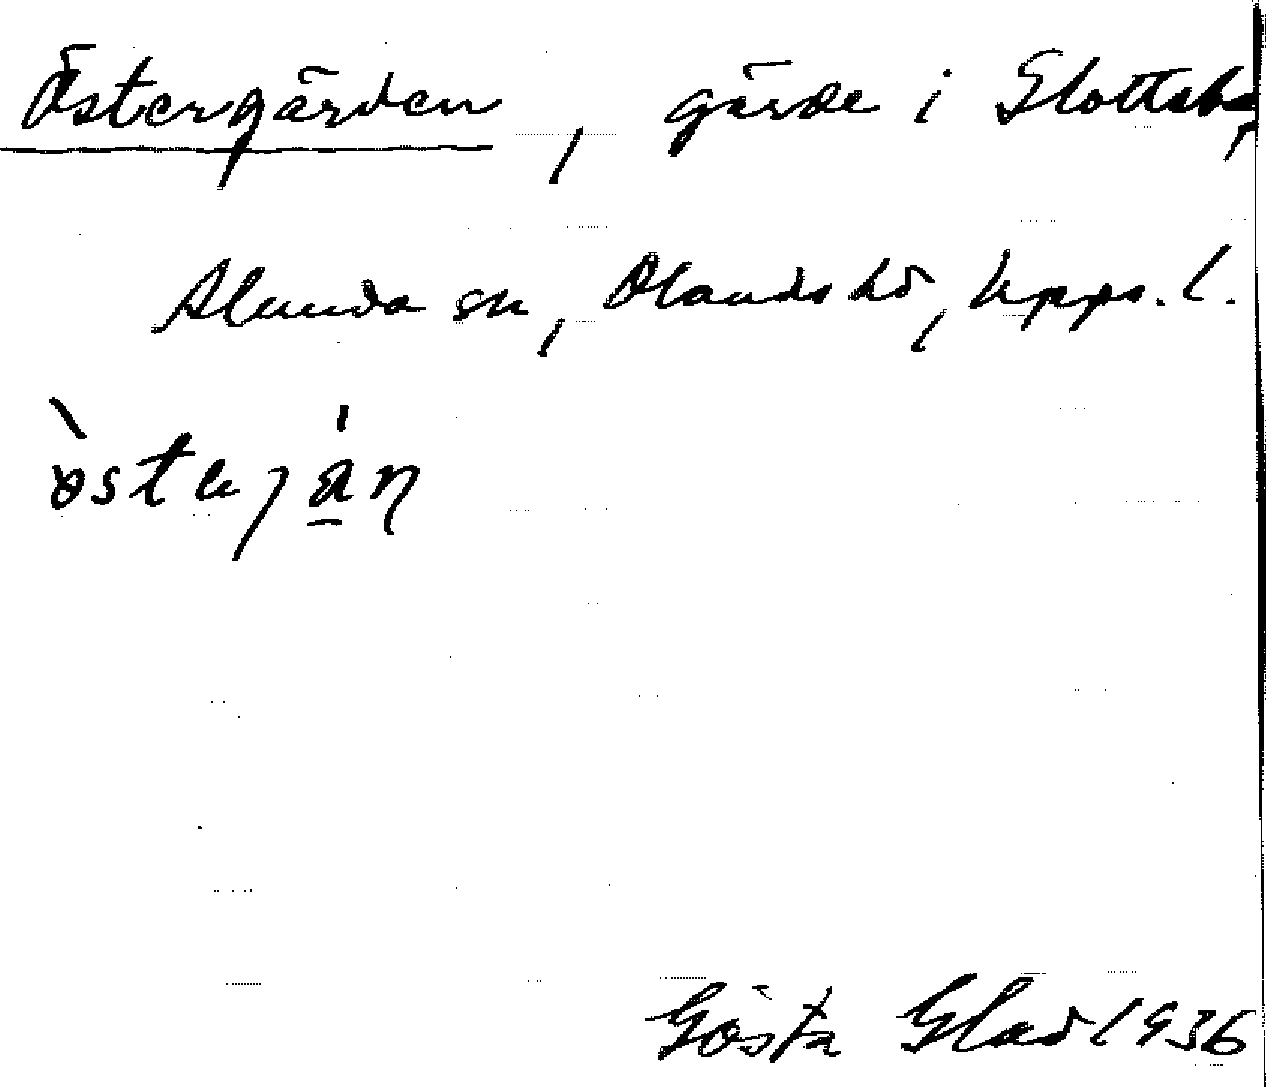 Östergärden, gärde i Slottsby,
Alunda sn, Olands hd, Upps. l.
Gösta Glad 1936